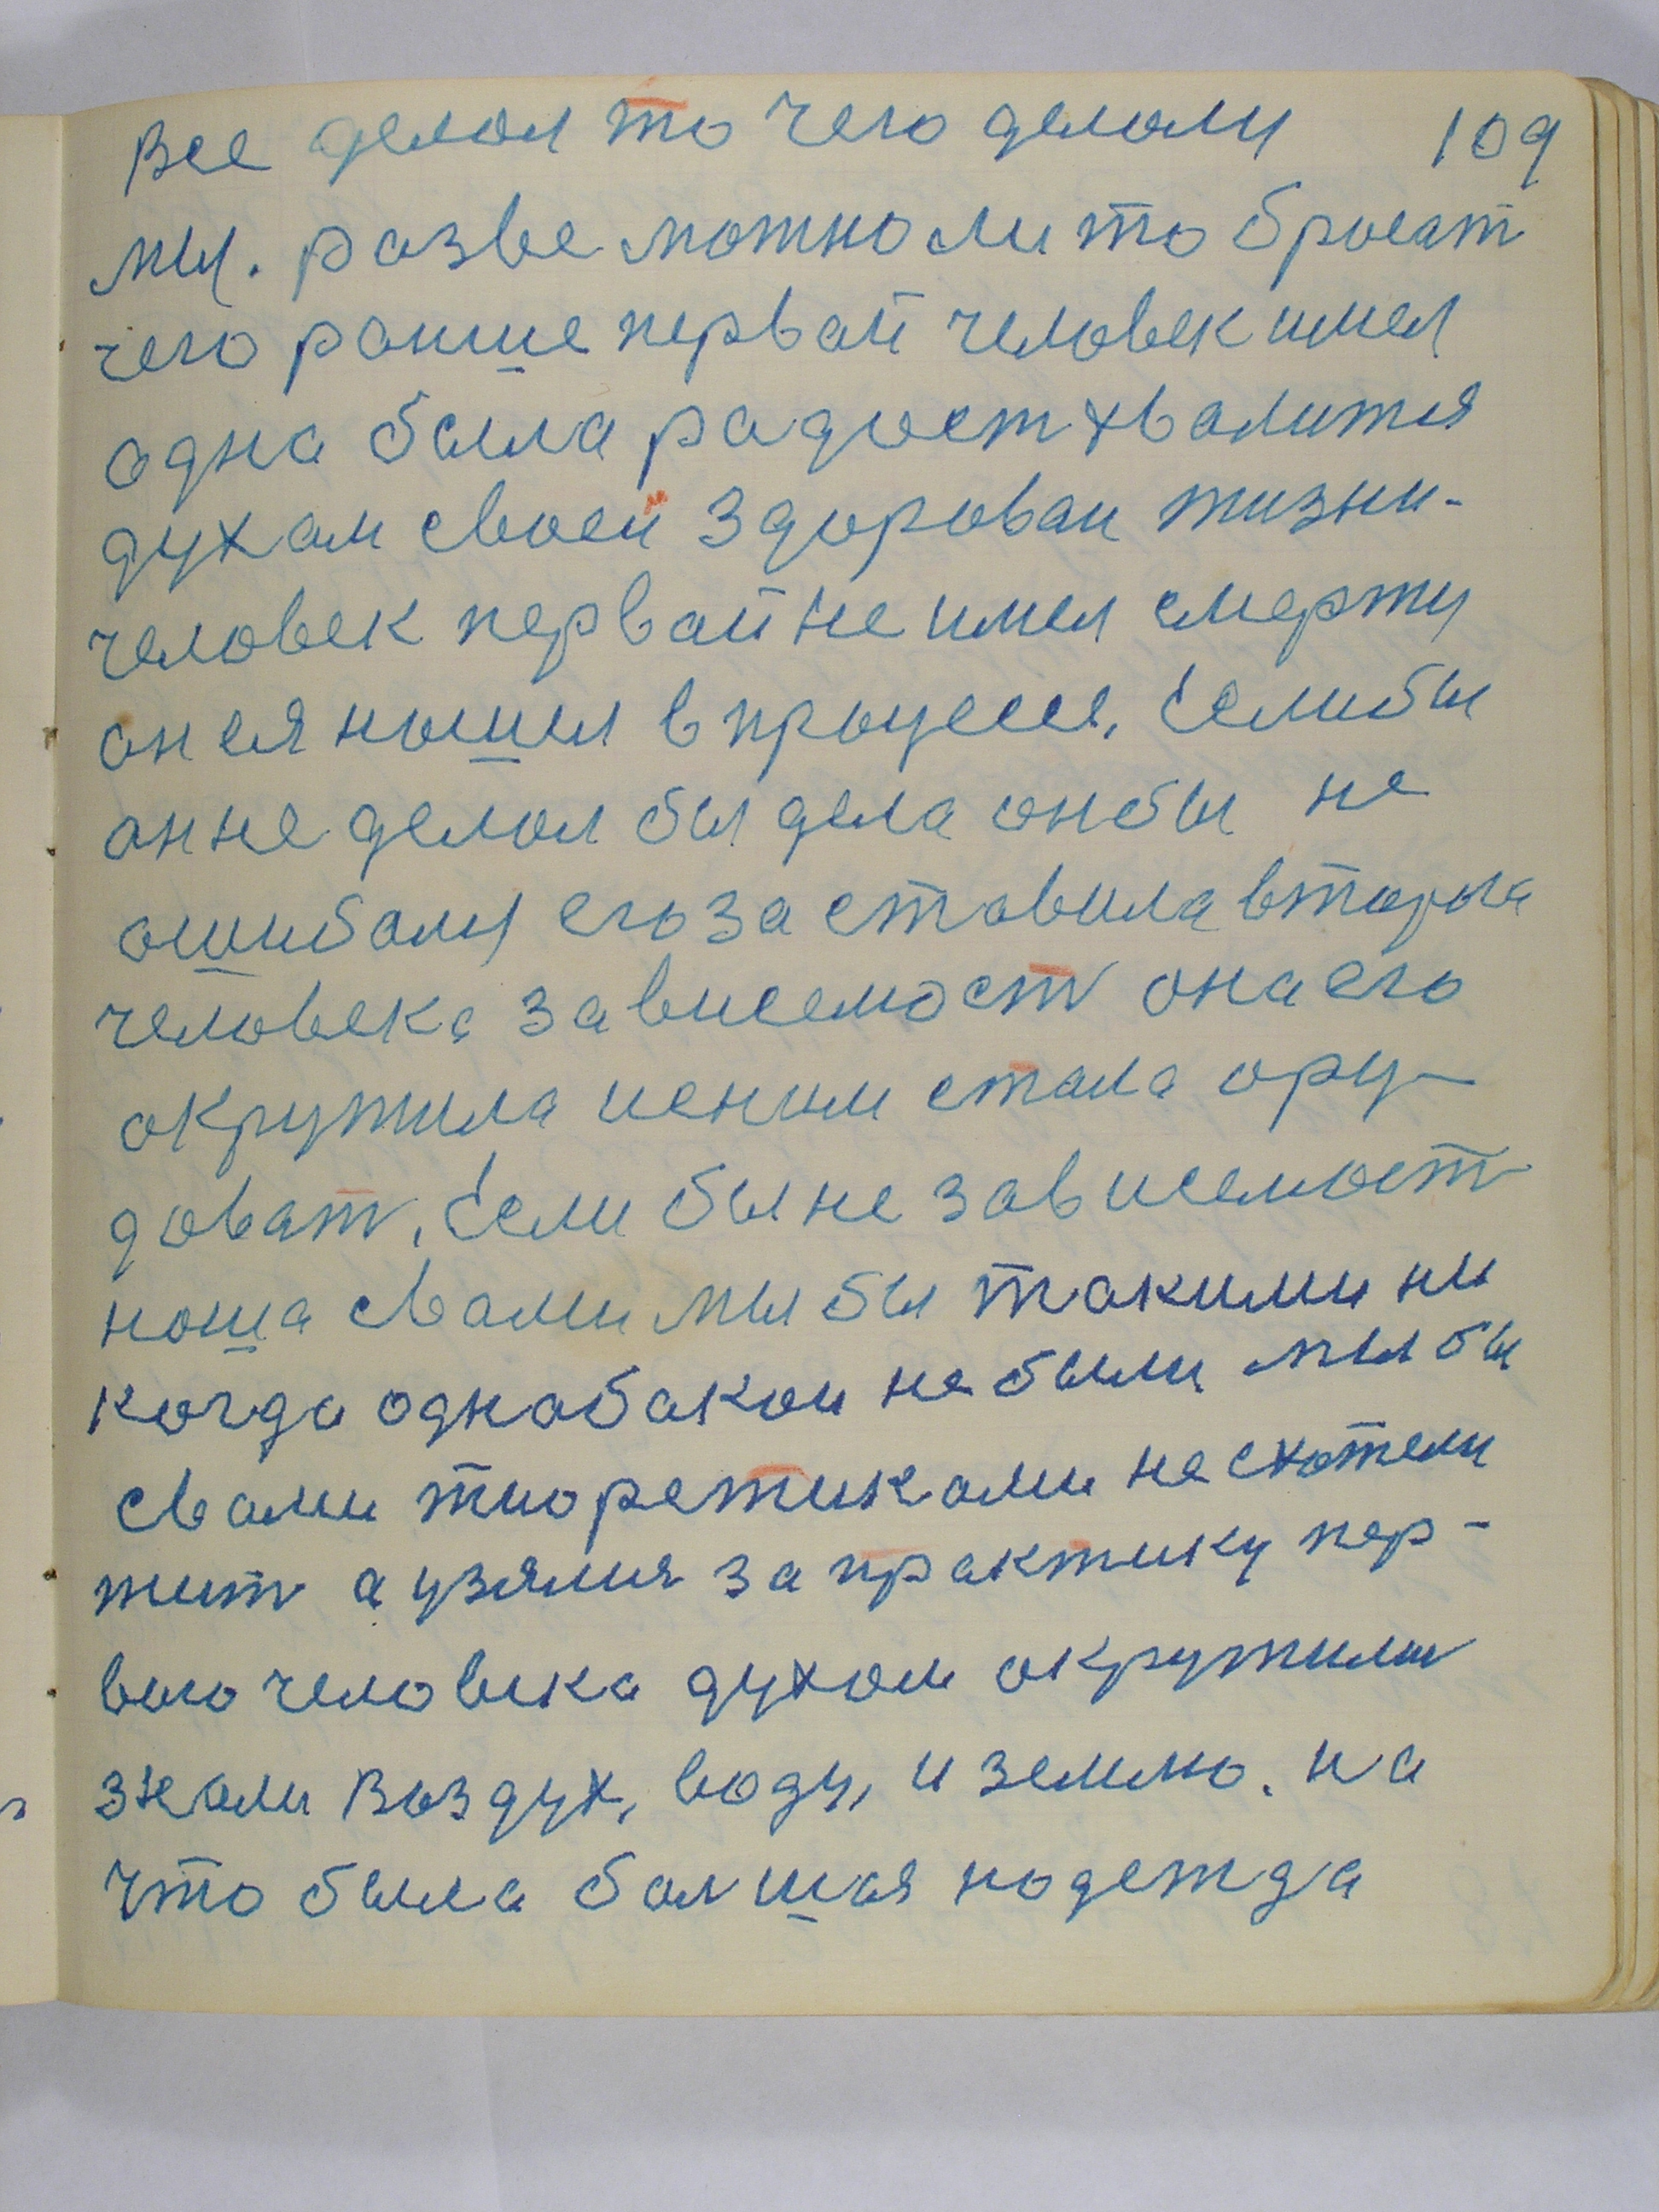 все делол то чего делоли 109
мы. розве можно ли то бросат
чего ранше первай человек имел
одна была радост хвалится
духам своей здоровай жизни-
человек первай не имел смерти
он ея нашел в процесе. Если бы
он не делол бы дела он бы не
ошибался его заставила второга
человека зависемост она его
окружила и с ним стала ору-
доват. Если бы не зависемост
наша свами мы бы такими ни
когда однобакои не были мы бы
свами тиоретиками не схотели
жит а узялися за практику пер-
вого человека духом окружили
знали воздух, воду, и землю. на
что была болшая надежда